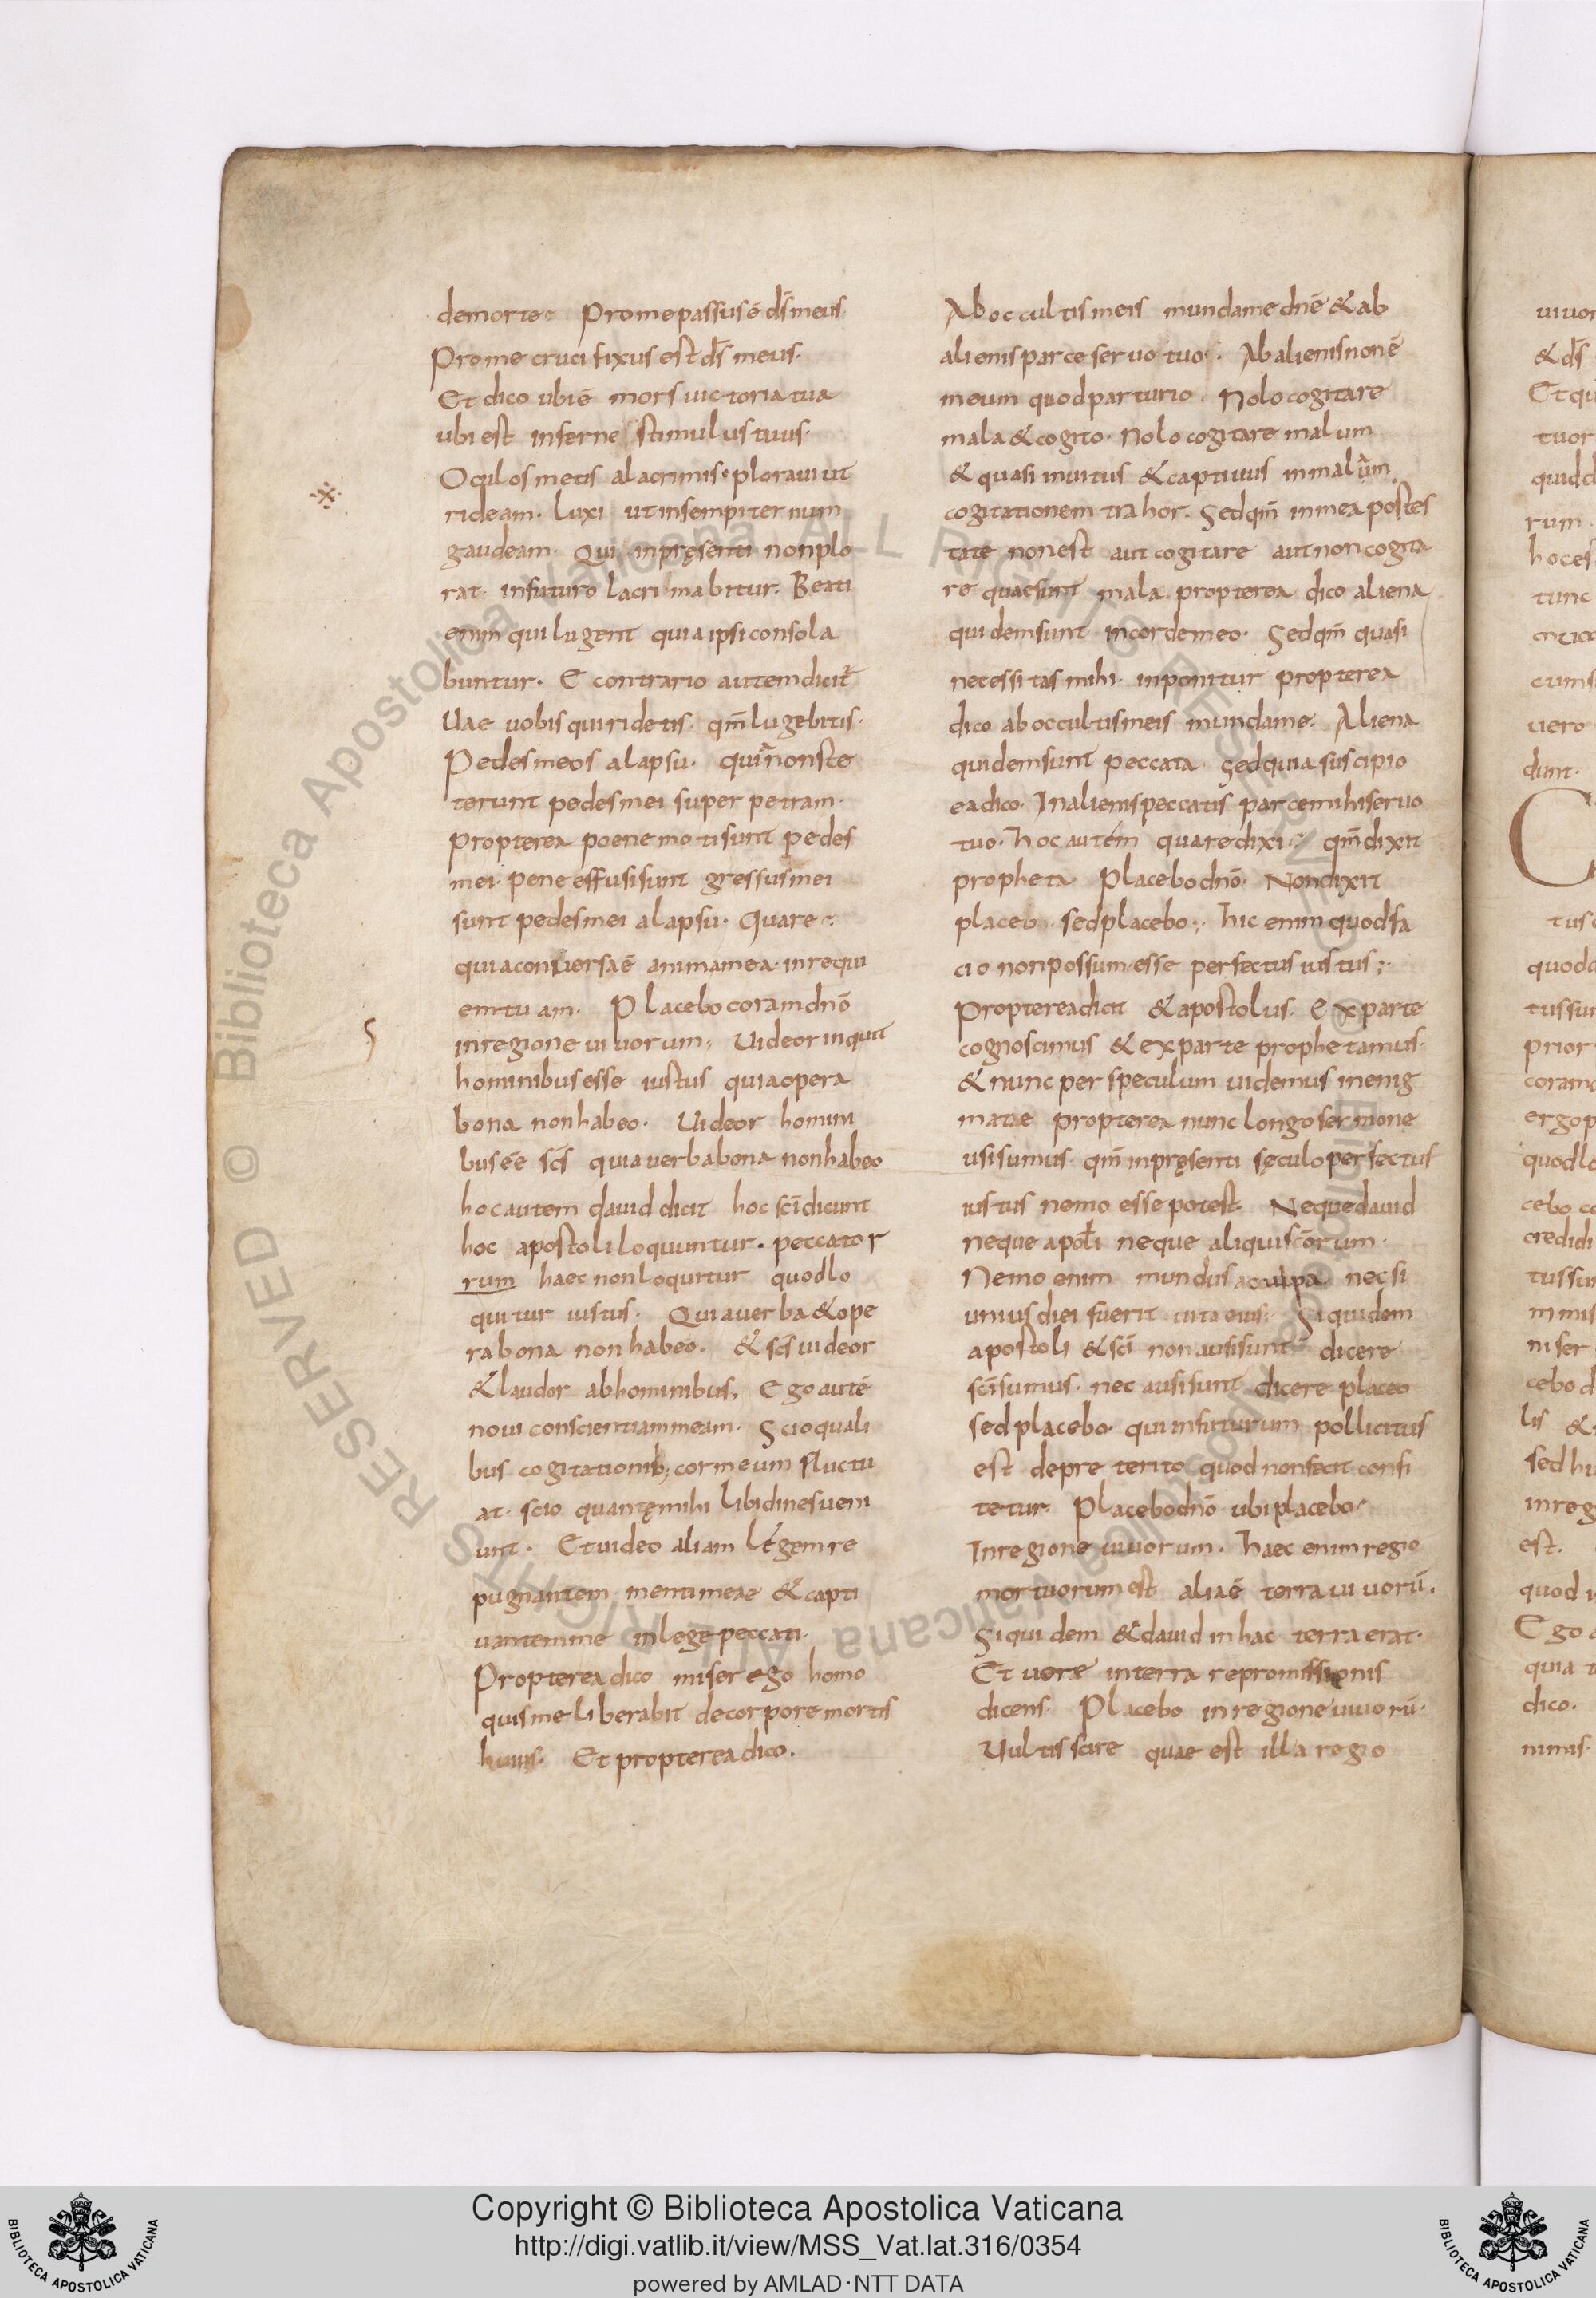 demorte· Promepassus ē dš meus·
Prome crucifixus est dš meus·
Et dico ubi ē mors uictoria tua
ubi est inferne stimulus tuus·
Oculos meos a lacrimis· ploraui ut
rideam· Luxi ut in sempiternum
gaudeam· Qui in pręsenti non plo
rat· in futuro lacrimabitur· Beati
enim qui lugent quia ipsi consola
buntur· E contrario autem dicit̄
Uae uobis qui ridetis· qm̄ lugebitis·
Pedes meos a lapsu· quia non ste
terunt pedes mei super petram·
propterea poene moti sunt pedes
mei· pene effusi sunt gressus mei
sunt pedes mei a lapsu· Quare·
quia conuersa ē anima mea· in requi
em tuam· Placebo coram dnō
in regione uiuorum· Uideor inquit
hominibus esse iustus quia opera
bona non habeo· Uideor homini
bus eē scs̄ quia uerba bona non habeo
hoc autem dauid dicit hoc scī dicunt
hoc apostoli loquuntur· peccator
rum haec non loquitur quod lo
quitur iustus· Quia uerba & ope
ra bona non habeo· & scs̄ uideor
& laudor ab hominibus, Ego autē
noui conscientiam meam· Scio quali
bus cogitationib; cor meum fluctu
at· scio quantę mihi libidines ueni
unt· Et uideo aliam legem re
pugnantem menti meae & capti
uantem me in lege peccati·
Propterea dico miser ego homo
quis me liberabit de corpore mortis
huius· Et propterea dico·
Ab occultis meis munda me dnē & ab
alienis parce seruo tuo· Ab alienis non ē
meum quod parturio· Nolo cogitare
mala & cogito· Nolo cogitare malum
& quasi inuitus & captiuus in malum
cogitationem trahor· Sed qm̄ in mea postes
tate non est aut cogitare aut non cogita
re quae sunt mala· propterea dico aliena
quidem sunt in corde meo· Sed qm̄ quasi
necessitas mihi inponitur propterea
dico ab occultis meis munda me· Aliena
quidem sunt peccata· sed quia suscipio
ea dico· In alienis peccatis parce mihi seruo
tuo· hoc autem quare dixi· qm̄ dixit
propheta· Placebo dnō· Non dixit
placeo· sed placebo· hic enim quod fa
cio non possum esse perfectus iustus;·
Propterea dicit & apostolus· Ex parte
cognoscimus & ex parte prophetamus·
& nunc per speculum uidemus in enig
mate propterea nunc longo sermone
usi sumus· qm̄ in pręsenti sęculo perfectus
iustus nemo esse potest· Neque dauid
neque apoli neque aliqui scōrum·
Nemo enim mundus a culpa nec si
unius diei fuerit uita eius· Si quidem
apostoli & scī non ausi sunt dicere
scī sumus· nec ausi sunt dicere placeo
sed placebo· qui in futurum pollicitus
est de preterito quod non fecit confi
tetur· Placebo dnō· ubi placebo·
In regione uiuorum· haec enim regio
mortuorum est· alia ē terra uiuorū·
Si quidem & dauid in hac terra erat·
Et uere in terra repromissionis
dicens· Placebo in regione uiuorū·
Uultis scire quae est illa regio
Copyright © Biblioteca Apostolica Vaticana
http://digi.vatlib.it/view/MSS_Vat.lat.316/0354
powered by AMLAD·NTT DATA